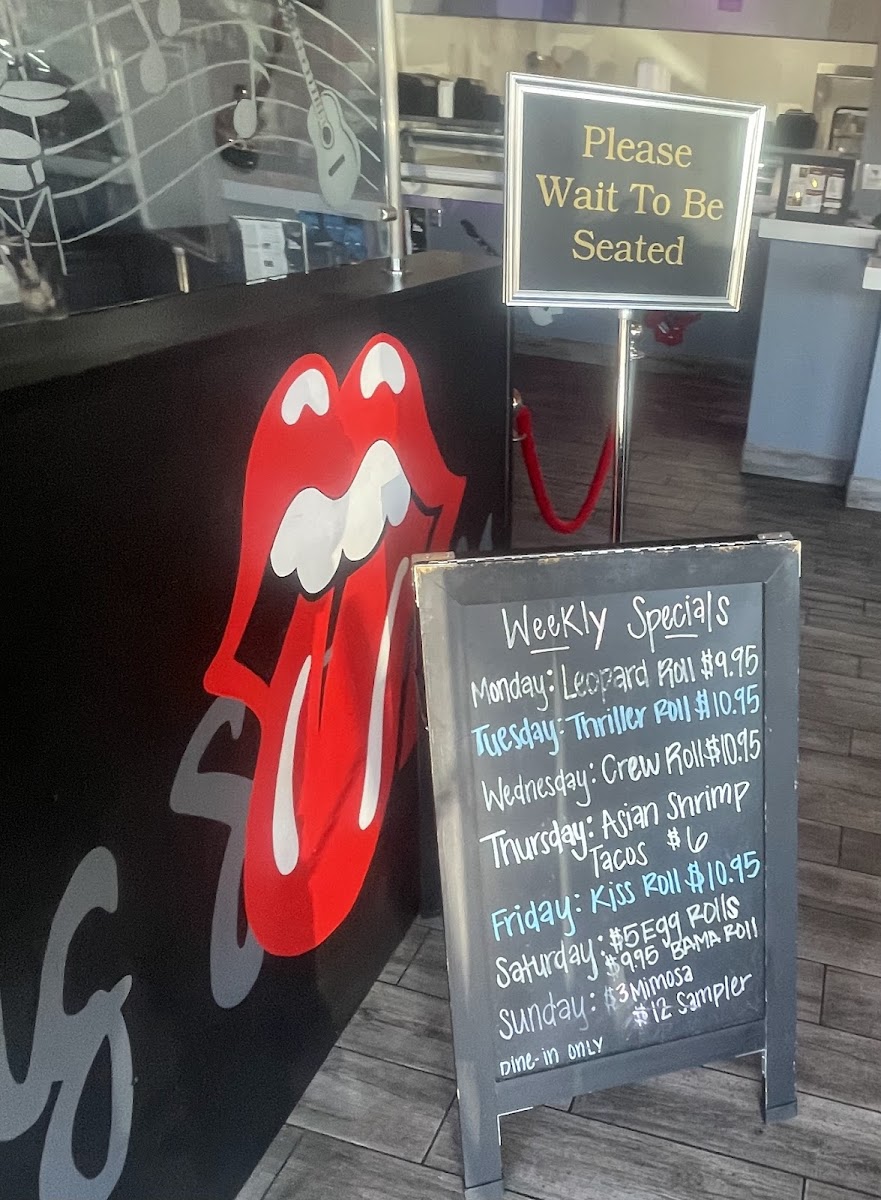 Please
Wait To Be
Seated
Weekly Specials
Monday: Leopard Roll $9.95
Tuesday: Thriller Roll $10.95
Wednesday: Crew Roll $10.95
Thursday: Asian Shrimp
Tacos $6
Friday: Kiss Roll $10.95
Saturday: $5 Egg Rolls
$9.95 BAMA Roll
Sunday: $3 Mimosa
$12 Sampler
Dine-in only